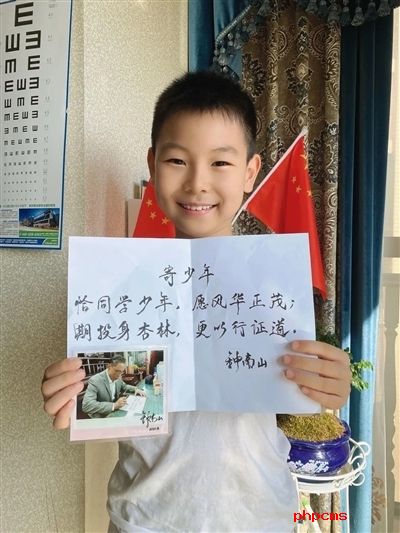 寄少年
恰同学少年，愿风华正茂；
期投身杏林，更以行证道。
钟南山
钟南山
phpcms